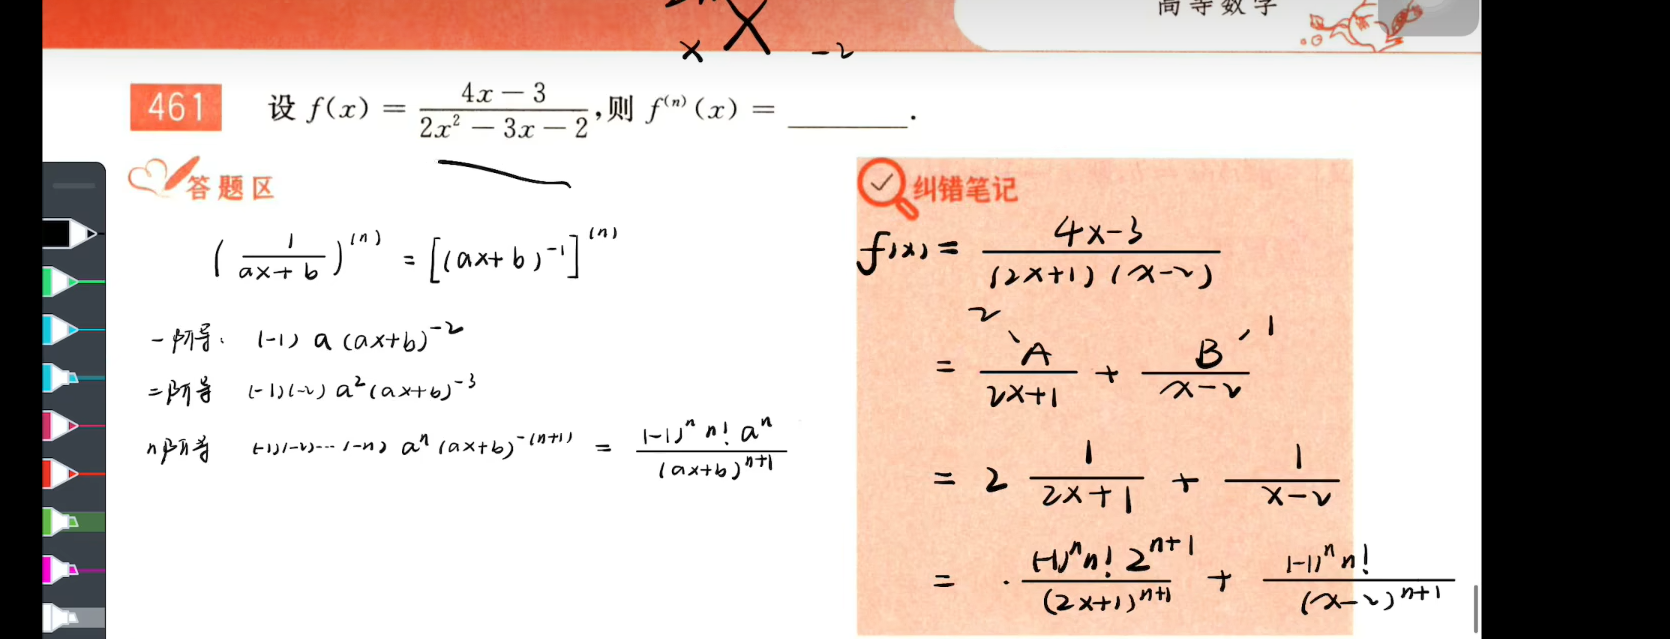 高等数学
x -2
461 设 f(x) = \frac{4x-3}{2x^2-3x-2},则 f^{(n)}(x) = ______.
答题区
纠错笔记
(\frac{1}{ax+b})^{(n)} = [(ax+b)^{-1}]^{(n)}
一阶导: (-1) a (ax+b)^{-2}
二阶导 (-1)(-2) a^2 (ax+b)^{-3}
n阶导 (-1)(-2)···(-n) a^n (ax+b)^{-(n+1)} = \frac{(-1)^n n! a^n}{(ax+b)^{n+1}}
f(x) = \frac{4x-3}{(2x+1)(x-2)}
2 1
= \frac{A}{2x+1} + \frac{B}{x-2}
= 2 \frac{1}{2x+1} + \frac{1}{x-2}
= \frac{(-1)^n n! 2^{n+1}}{(2x+1)^{n+1}} + \frac{(-1)^n n!}{(x-2)^{n+1}}